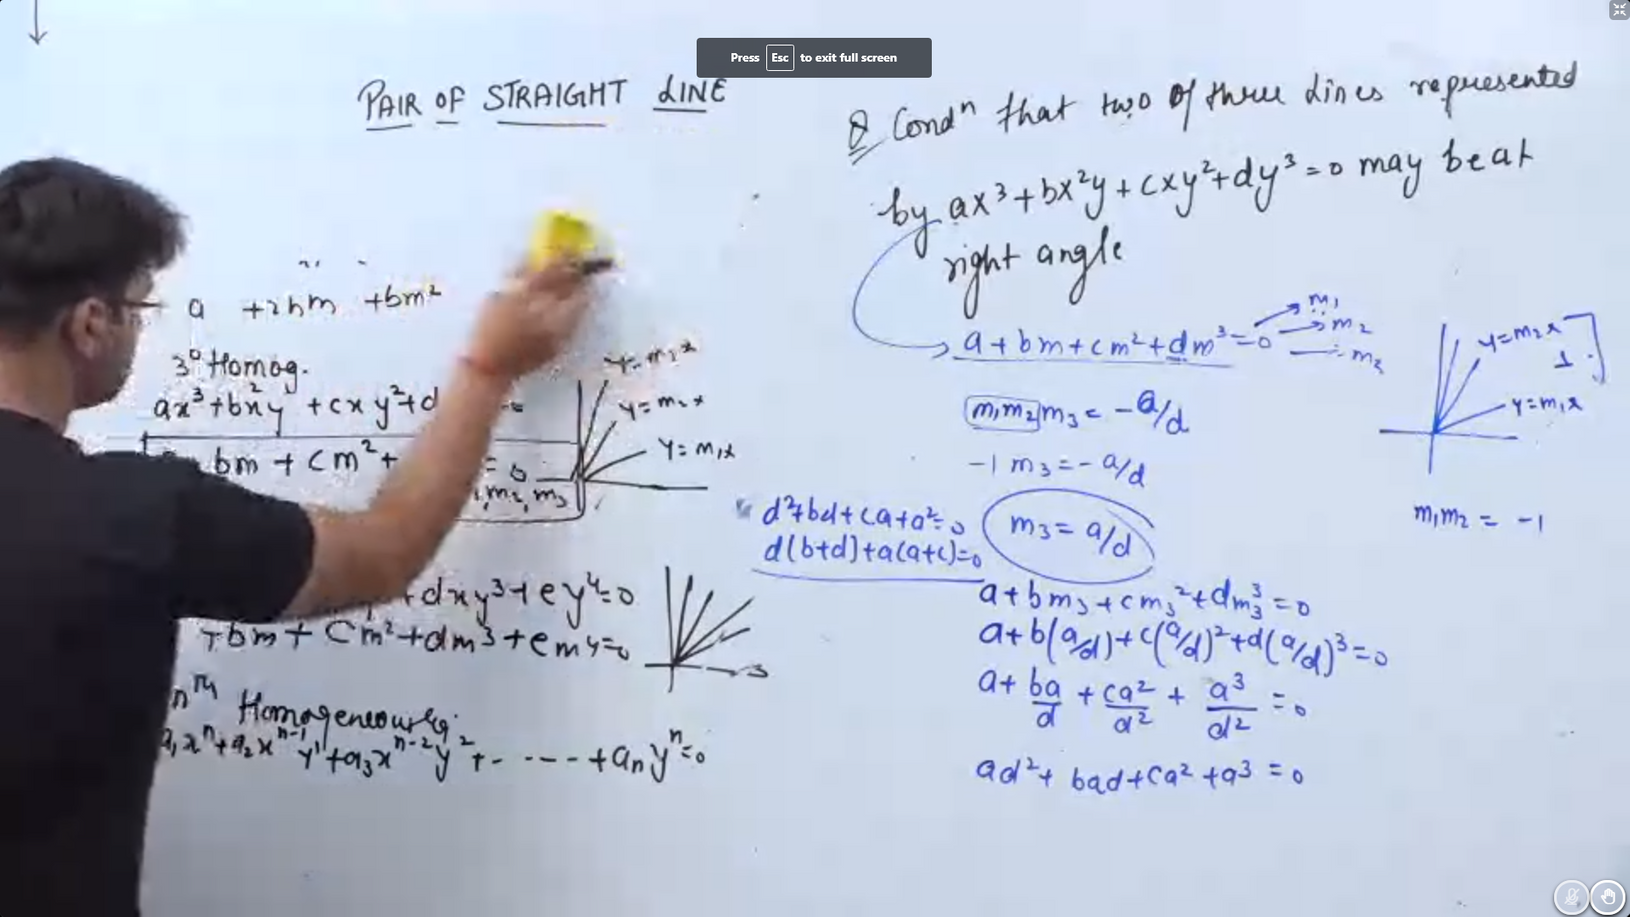 Press Esc to exit full screen
PAIR OF STRAIGHT LINE
a +2hm +bm²
3° Homog.
ax³+bx²y +cxy²+d
bm + cm²+ = 0
m₂, m₃
y=m₂x
y=m₁x
+dxy³+ey⁴=0
+bm+ Cm²+dm³+em⁴=0
Homogeneous
a₁xⁿ+a₂xⁿ⁻¹y¹+a₃xⁿ⁻²y²+- ---- +aₙyⁿ=0
Q Condⁿ that two of three Lines represented
by ax³+bx²y+cxy²+dy³=0 may be at
right angle
a+bm+cm²+dm³=0
m₁
m₂
m₃
m₁m₂m₃= -a/d
-1 m₃=-a/d
m₃= a/d
d²+bd+ca+a²=0
d(b+d)+a(a+c)=0
a+bm₃+cm₃²+dm₃³=0
a+b(a/d)+c(a/d)²+d(a/d)³=0
a+ ba/d + ca²/d² + a³/d² =0
ad²+ bad+ca²+a³ =0
y=m₂x
y=m₁x
m₁m₂ = -1